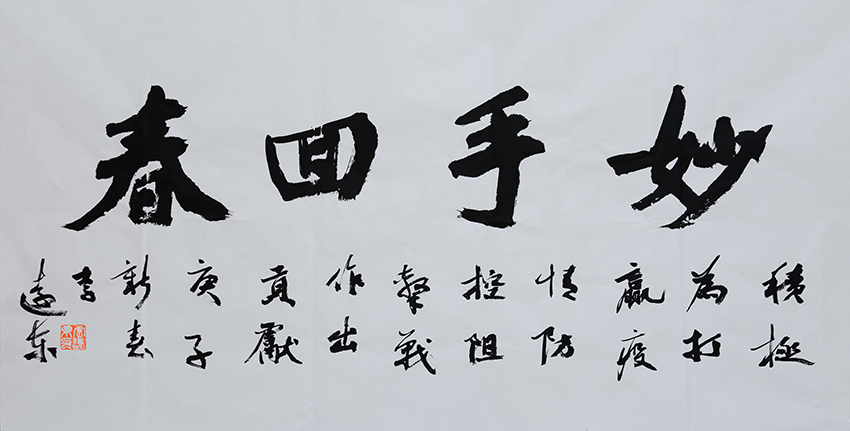 妙手回春
積極
為打
贏疫
情防
控阻
擊戰
作出
貢獻
庚子
新春
李
遠東